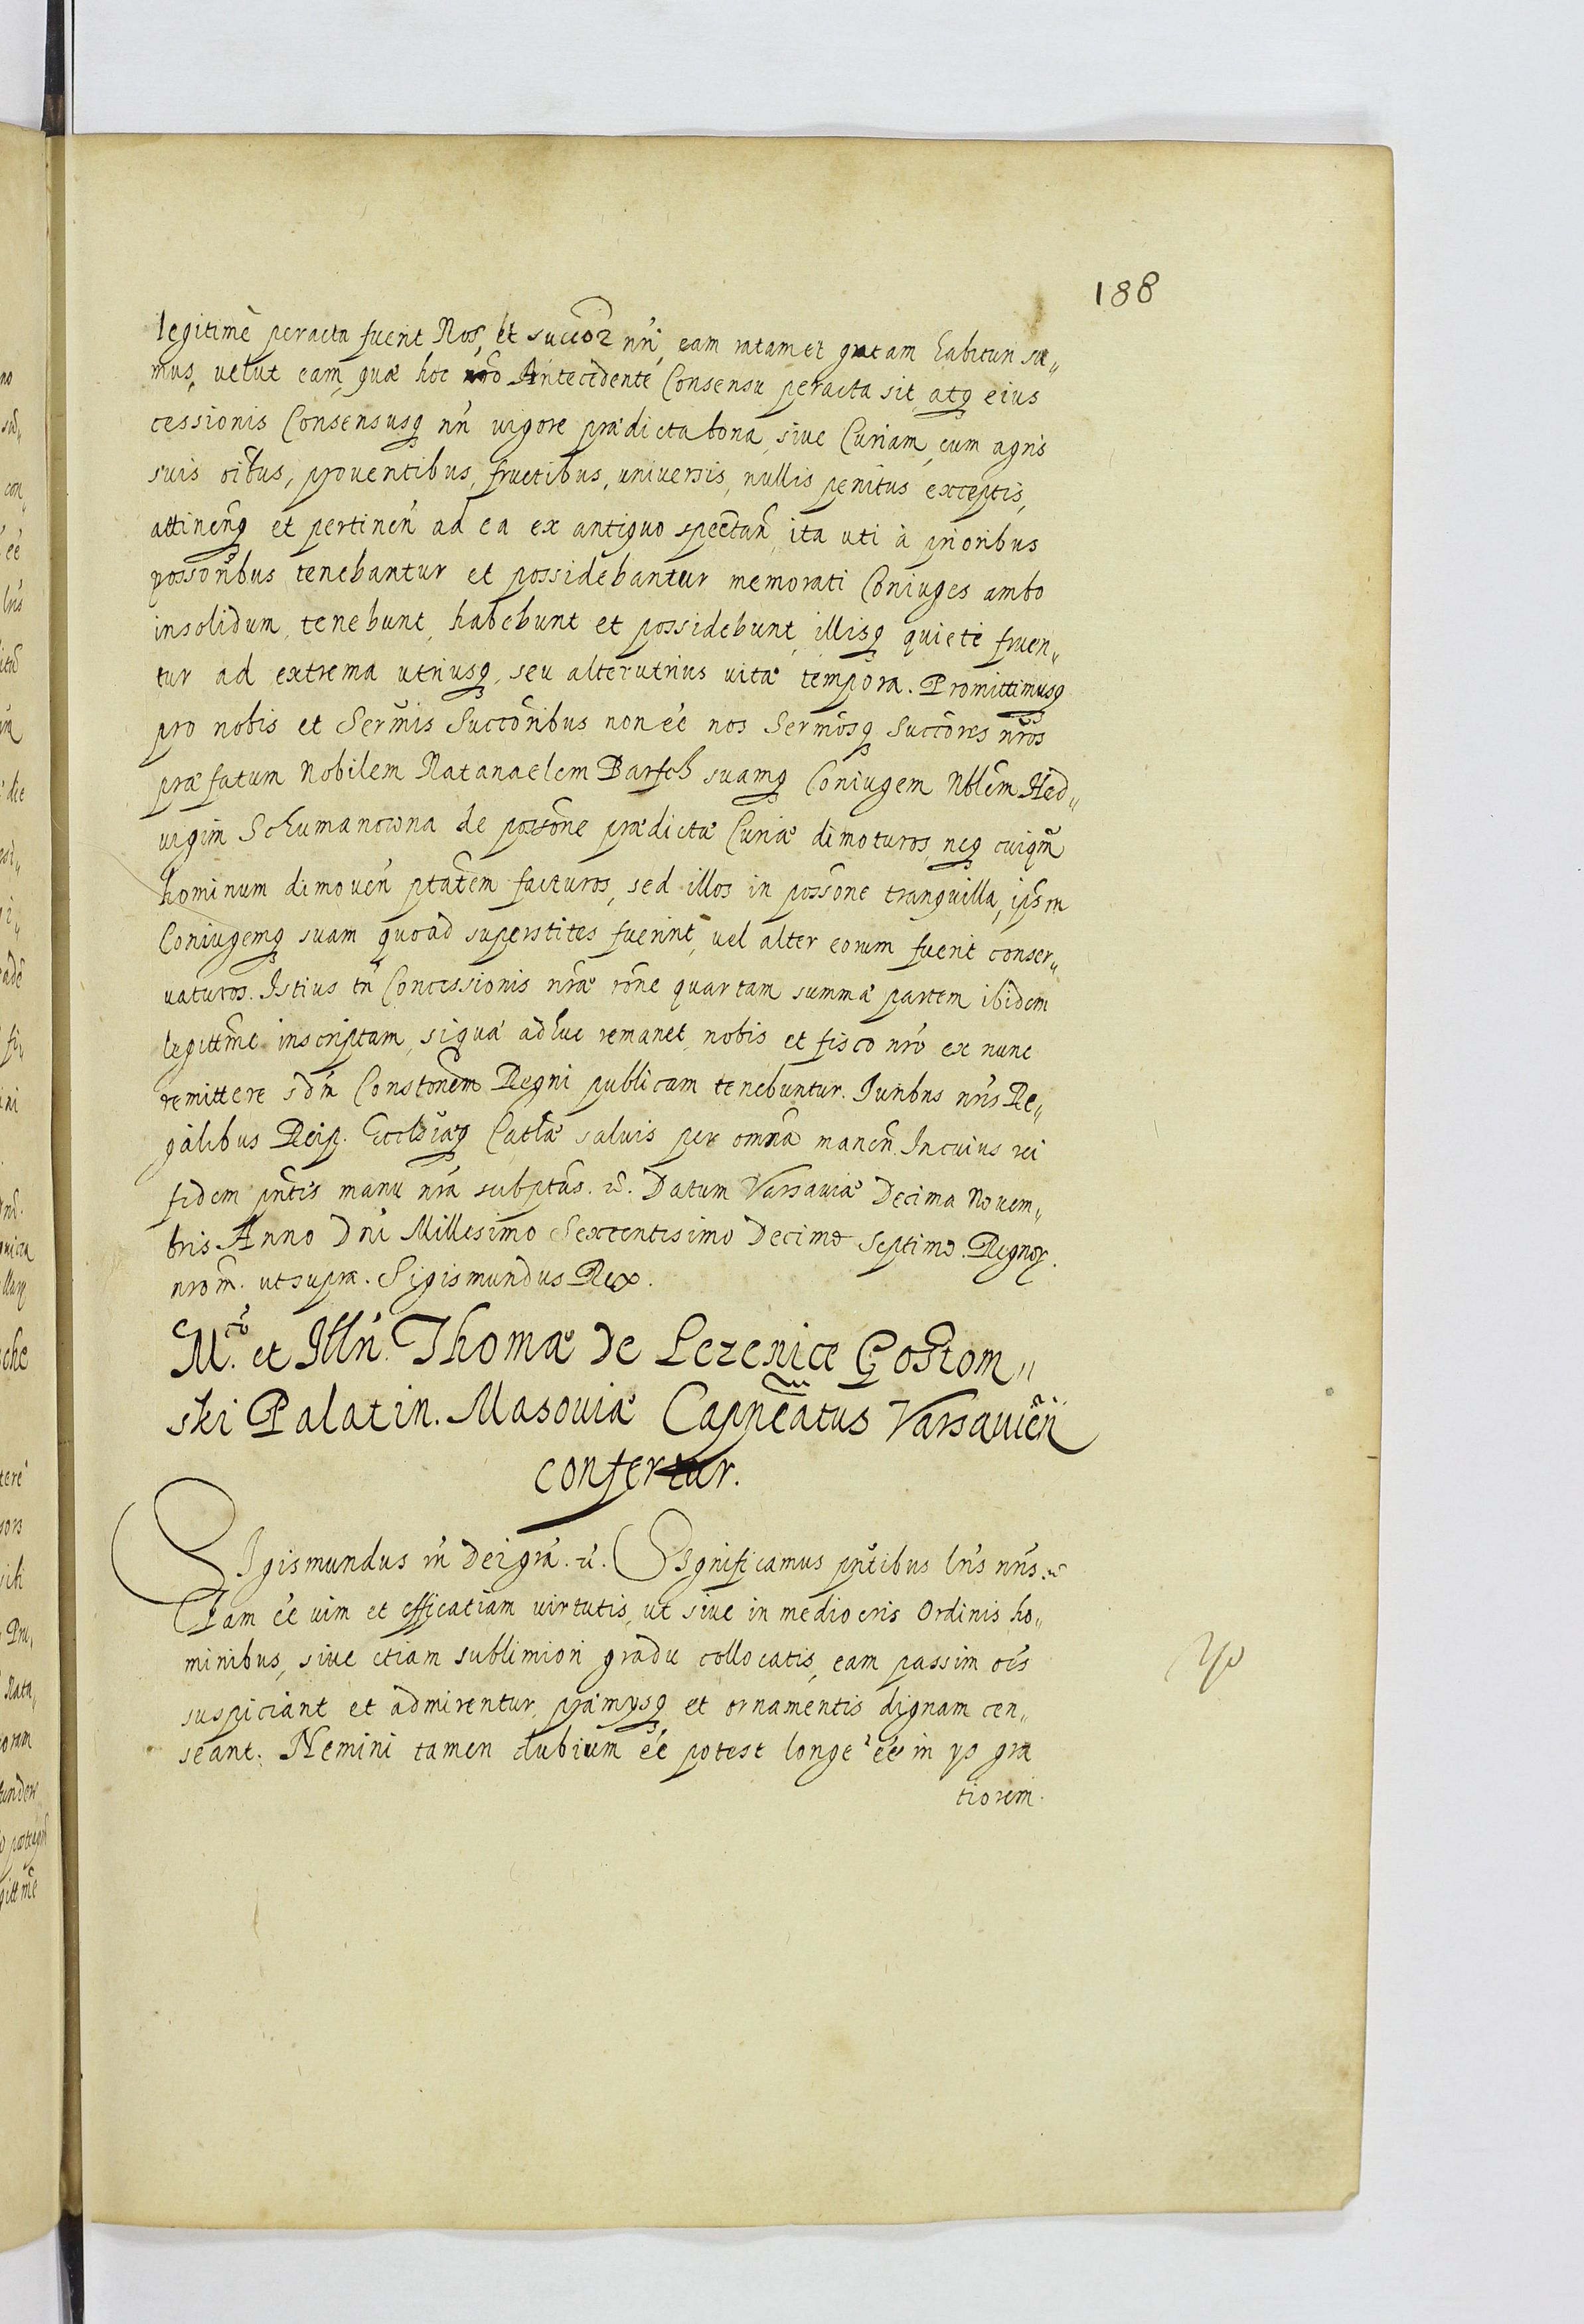 188
legitimè peracta fuerit Nos, et succor nri, eam ratam et gratam habituri su„
mus, velut eam, quæ hoc nro Antecedente Consensu peracta sit, atq eius
cessionis Consensusq nri vigore prædicta bona, sive Curiam, cum agris
suis oibus, proventibus, fructibus, universis, nullis penitus exceptis,
attinenq et pertinen ad ea ex antiquo spectan, ita uti à prioribus
possoribus tenebantur et possidebantur memorati Coniuges ambo
insolidum, tenebunt, habebunt et possidebunt, illisq quietè fruen„
tur ad extrema utriusq, seu alterutrius vitæ tempora. Promittimusq
pro nobis et Sermis Succoribus non éé nos Sermosq Succores nros
præfatum Nobilem Natanaelem Barsch suamq Coniugem Nblem Hed„
vigim Schumanowna de possone prædictæ Curiæ dimoturos, neq cuiqm
hominum dimoven ptatem facturos, sed illos in possone tranquilla, ipsm
Coniugemq suam quoad superstites fuerint, vel alter eorum fuerit conser„
vaturos. Istius tn Concessionis nræ rone quartam summæ partem ibidem
legittme inscriptam, siquæ adhuc remanet, nobis et fisco nro ex nunc
remittere sdm Constonem Regni publicam tenebuntur. Iuribus nris Re„
galibus Reip. Ecclsiæq Cathæ salvis per omnia manen. In cuius rei
fidem pntes manu nra subptas. &. Datum Varsaviæ Decima Novem„
bris Anno Dni Millesimo Sexcentesimo Decimo Septimo. Regnor.
nrorm. ut supra. Sigismundus Rex.
M.co et Illri. Thomæ de Lezenice Gostom„
ski Palatin. Masoviæ Capneatus Varsavien
confertur.
SIgismundus III Dei gra. &. SIgnificamus pntibus lris nris. &
Eam éé vim et efficatiam virtutis, ut sive in mediocris Ordinis ho„
minibus, sive etiam sublimiori gradu collocatis, eam passim oés
suspiciant et admirentur, præmysq et ornamentis dignam cen„
seant. Nemini tamen dubium éé potest longe éé in ys gra
tiorem.